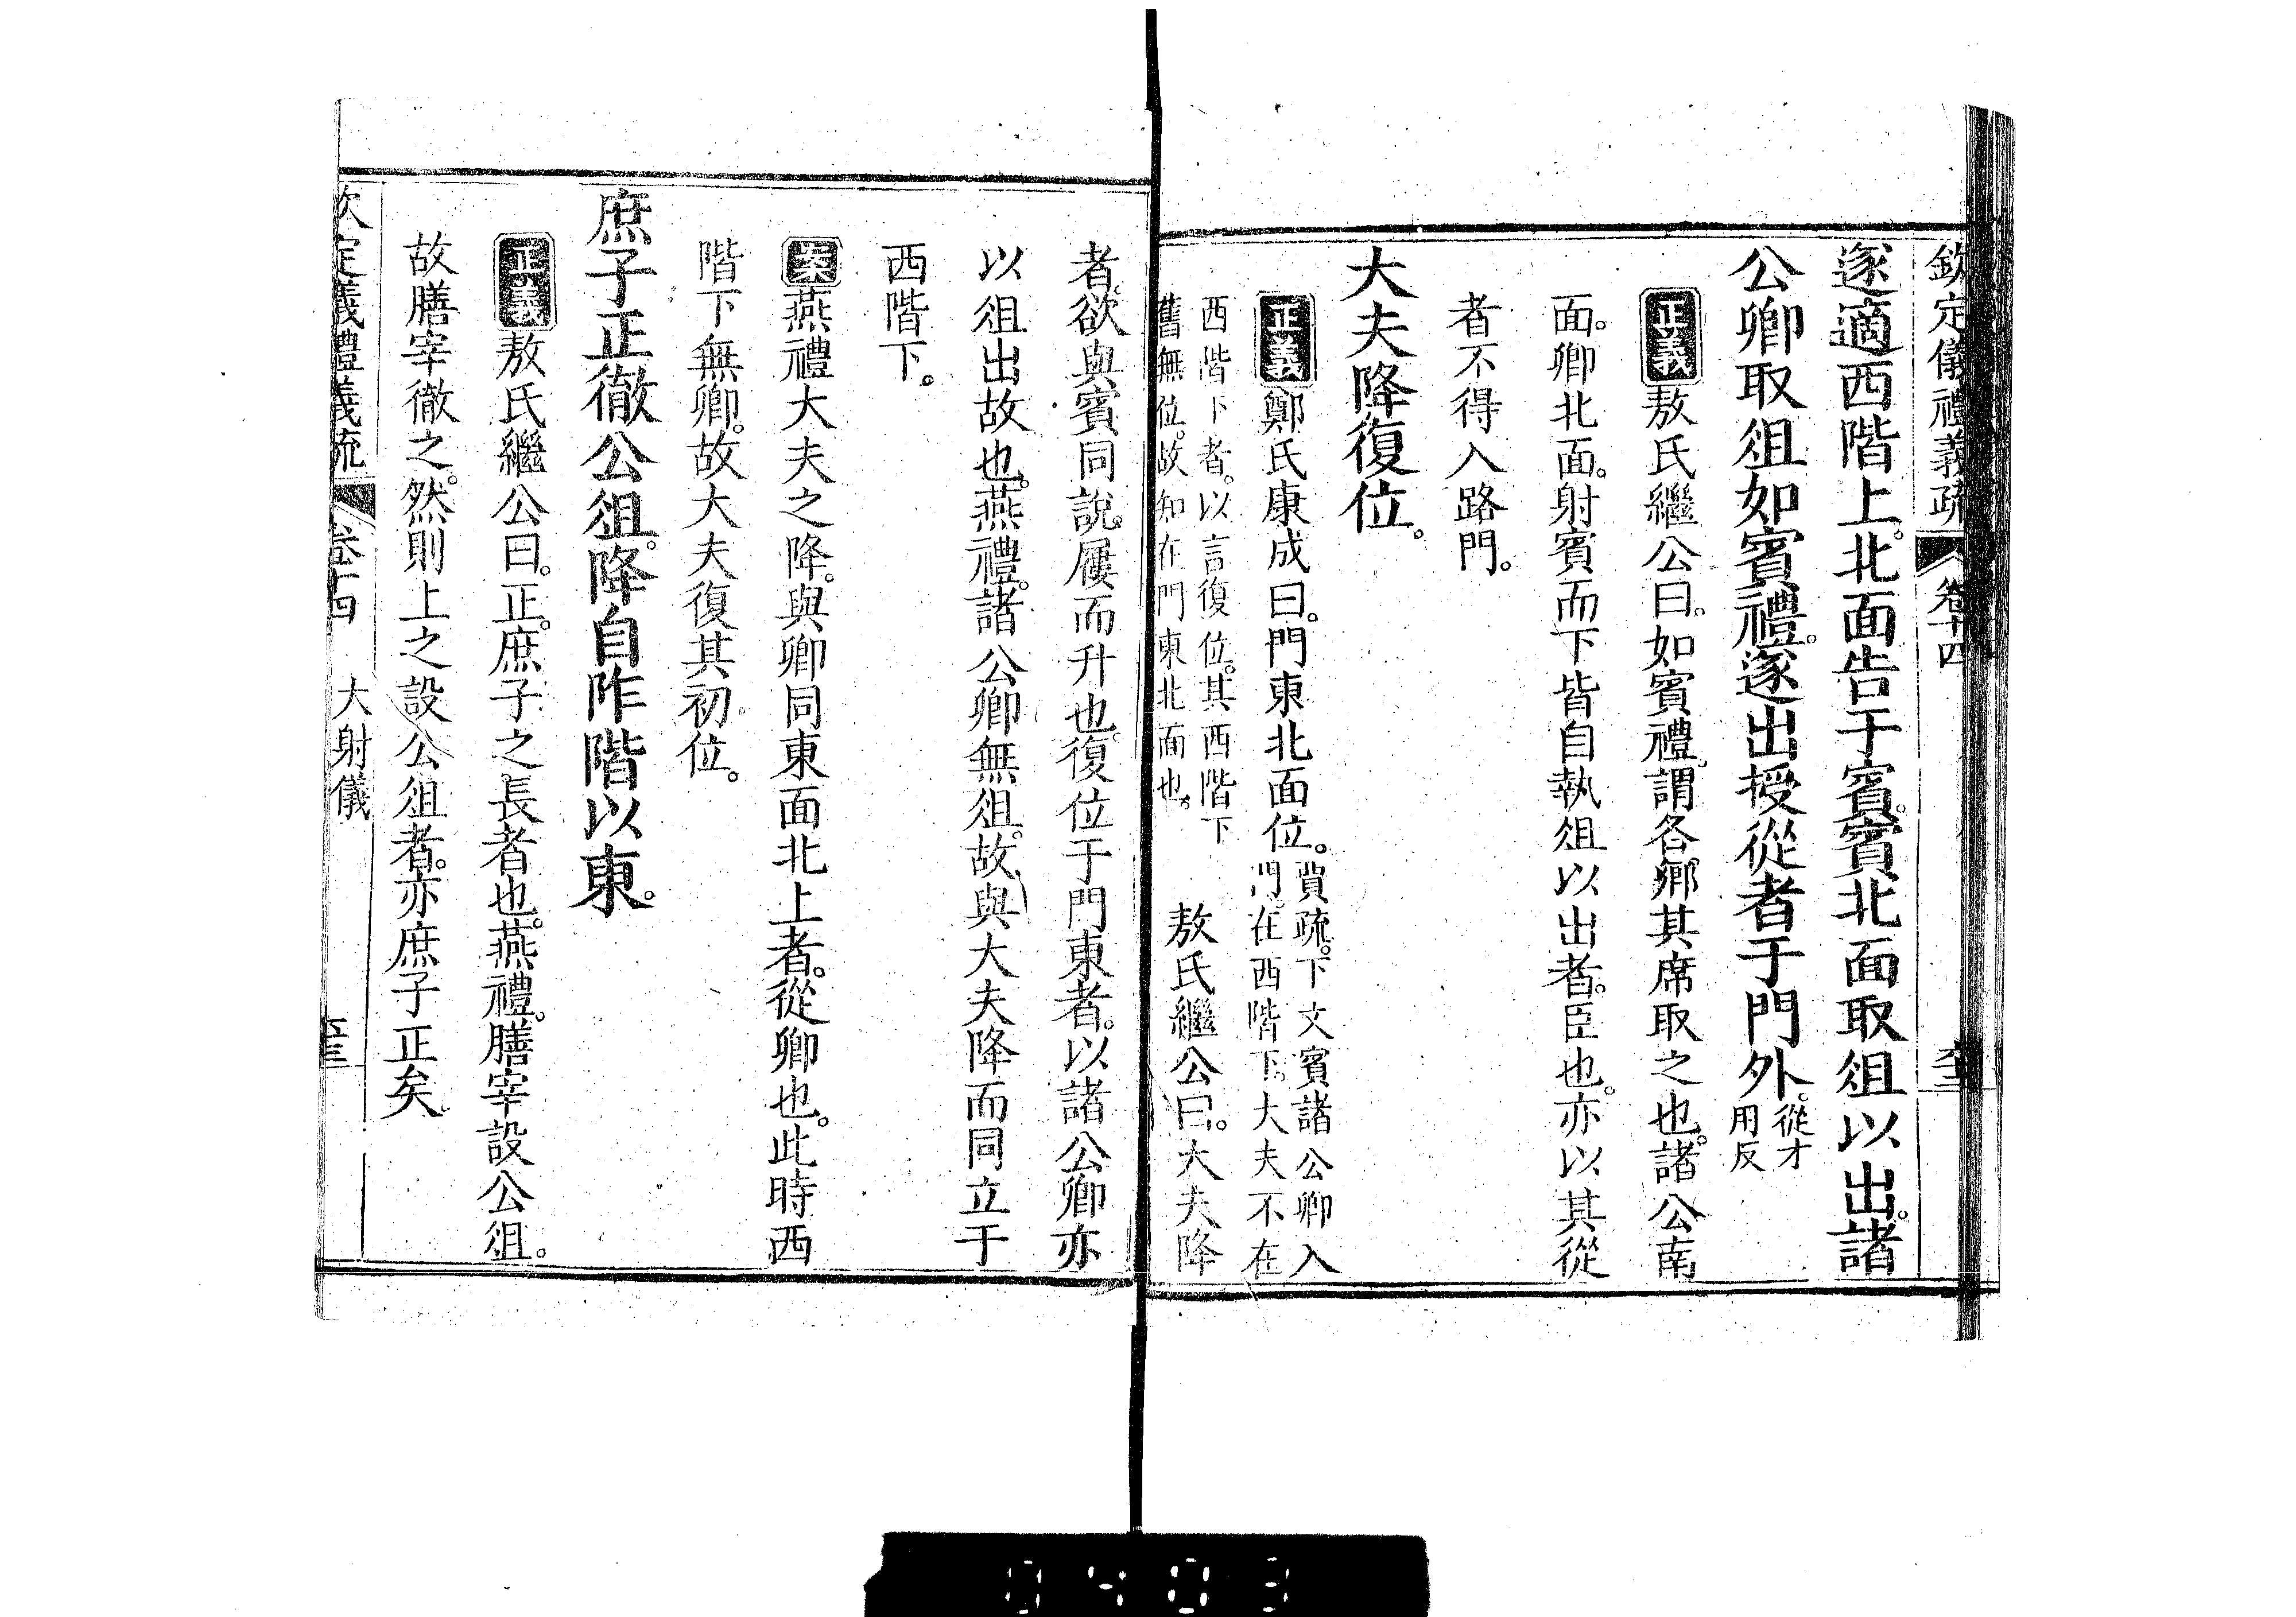 欽定儀禮義疏 卷十四
遂適西階上。北面告于賓。賓北面取俎以出。諸
公卿取俎如賓禮。遂出授從者于門外。從才用反
正義敖氏繼公曰。如賓禮。謂各鄉其席取之也。諸公南
面。卿北面。射賓而下皆自執俎以出者。臣也。亦以其從
者不得入路門。
大夫降復位。
正義鄭氏康成曰。門東北面位。賈疏。下文賓諸公卿入門。在西階下。大夫不在
西階下者。以言復位。其西階下舊無位。故知在門東北面也。 敖氏繼公曰。大夫降
者。欲與賓同說屨而升也。復位于門東者。以諸公卿亦
以俎出故也。燕禮。諸公卿無俎。故與大夫降而同立于
西階下。
案燕禮大夫之降。與卿同東面北上者。從卿也。此時西
階下無卿。故大夫復其初位。
庶子正徹公俎。降自阼階以東。
正義敖氏繼公曰。正。庶子之長者也。燕禮。膳宰設公俎。
故膳宰徹之。然則上之設公俎者。亦庶子正矣。
欽定儀禮義疏 卷十四 大射儀
0403